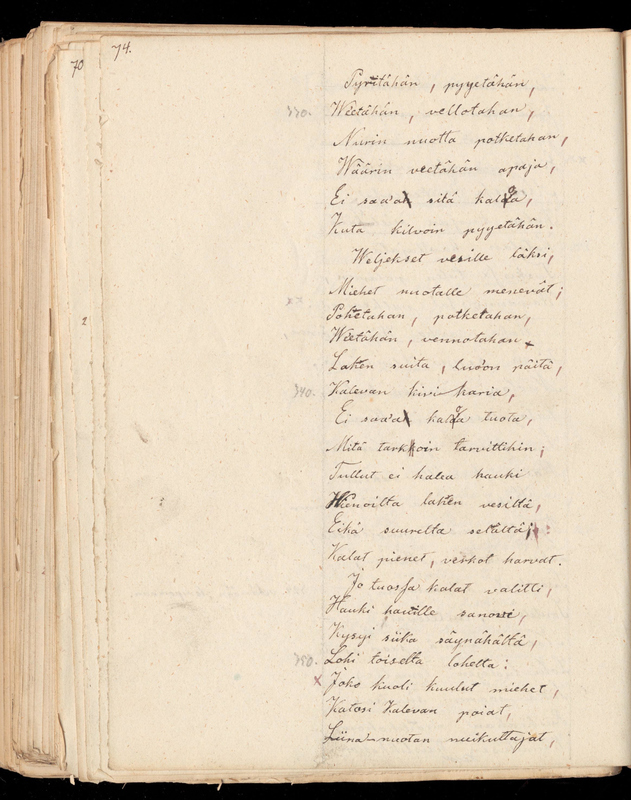 70
74.
2
Pyritähän, pyyetähän,
330. Weetähän, vellotahan,
Nurin nuotta potketahan,
Wäärin veetähän apaja,
Ei saa'a sitä kaloa,
Kuta kilvoin pyyetähän.
Weljekset vesille läksi,
Miehet nuotalle menevät;
Potketahan, potketahan,
Weetähän, vennotahan
Lahen suita, luo'on päitä,
340. Kalevan kivi karia,
Ei saa'a kaloa tuota,
Mitä tarkoin tarvittihin;
Tullut ei halea hauki
Hienoilta lahen vesiltä,
Eikä suurelta selältä;
Kalat pienet, verkot harvat.
Jo tuossa kalat valitti,
Hauki hauille sanovi,
Kysyi siika säynähältä,
350. Lohi toiselta lohelta:
x Joko kuoli kuulut miehet,
Katosi Kalevan poiat,
Liina-nuotan nuikuttajat,